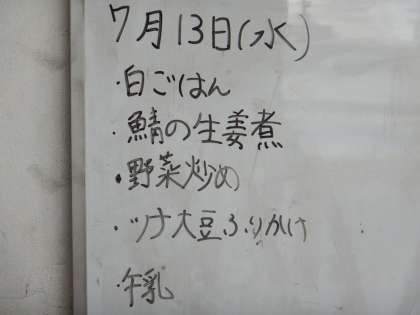 7月13日(水)
・白ごはん
・鯖の生姜煮
・野菜炒め
・ツナ大豆ふりかけ
・牛乳